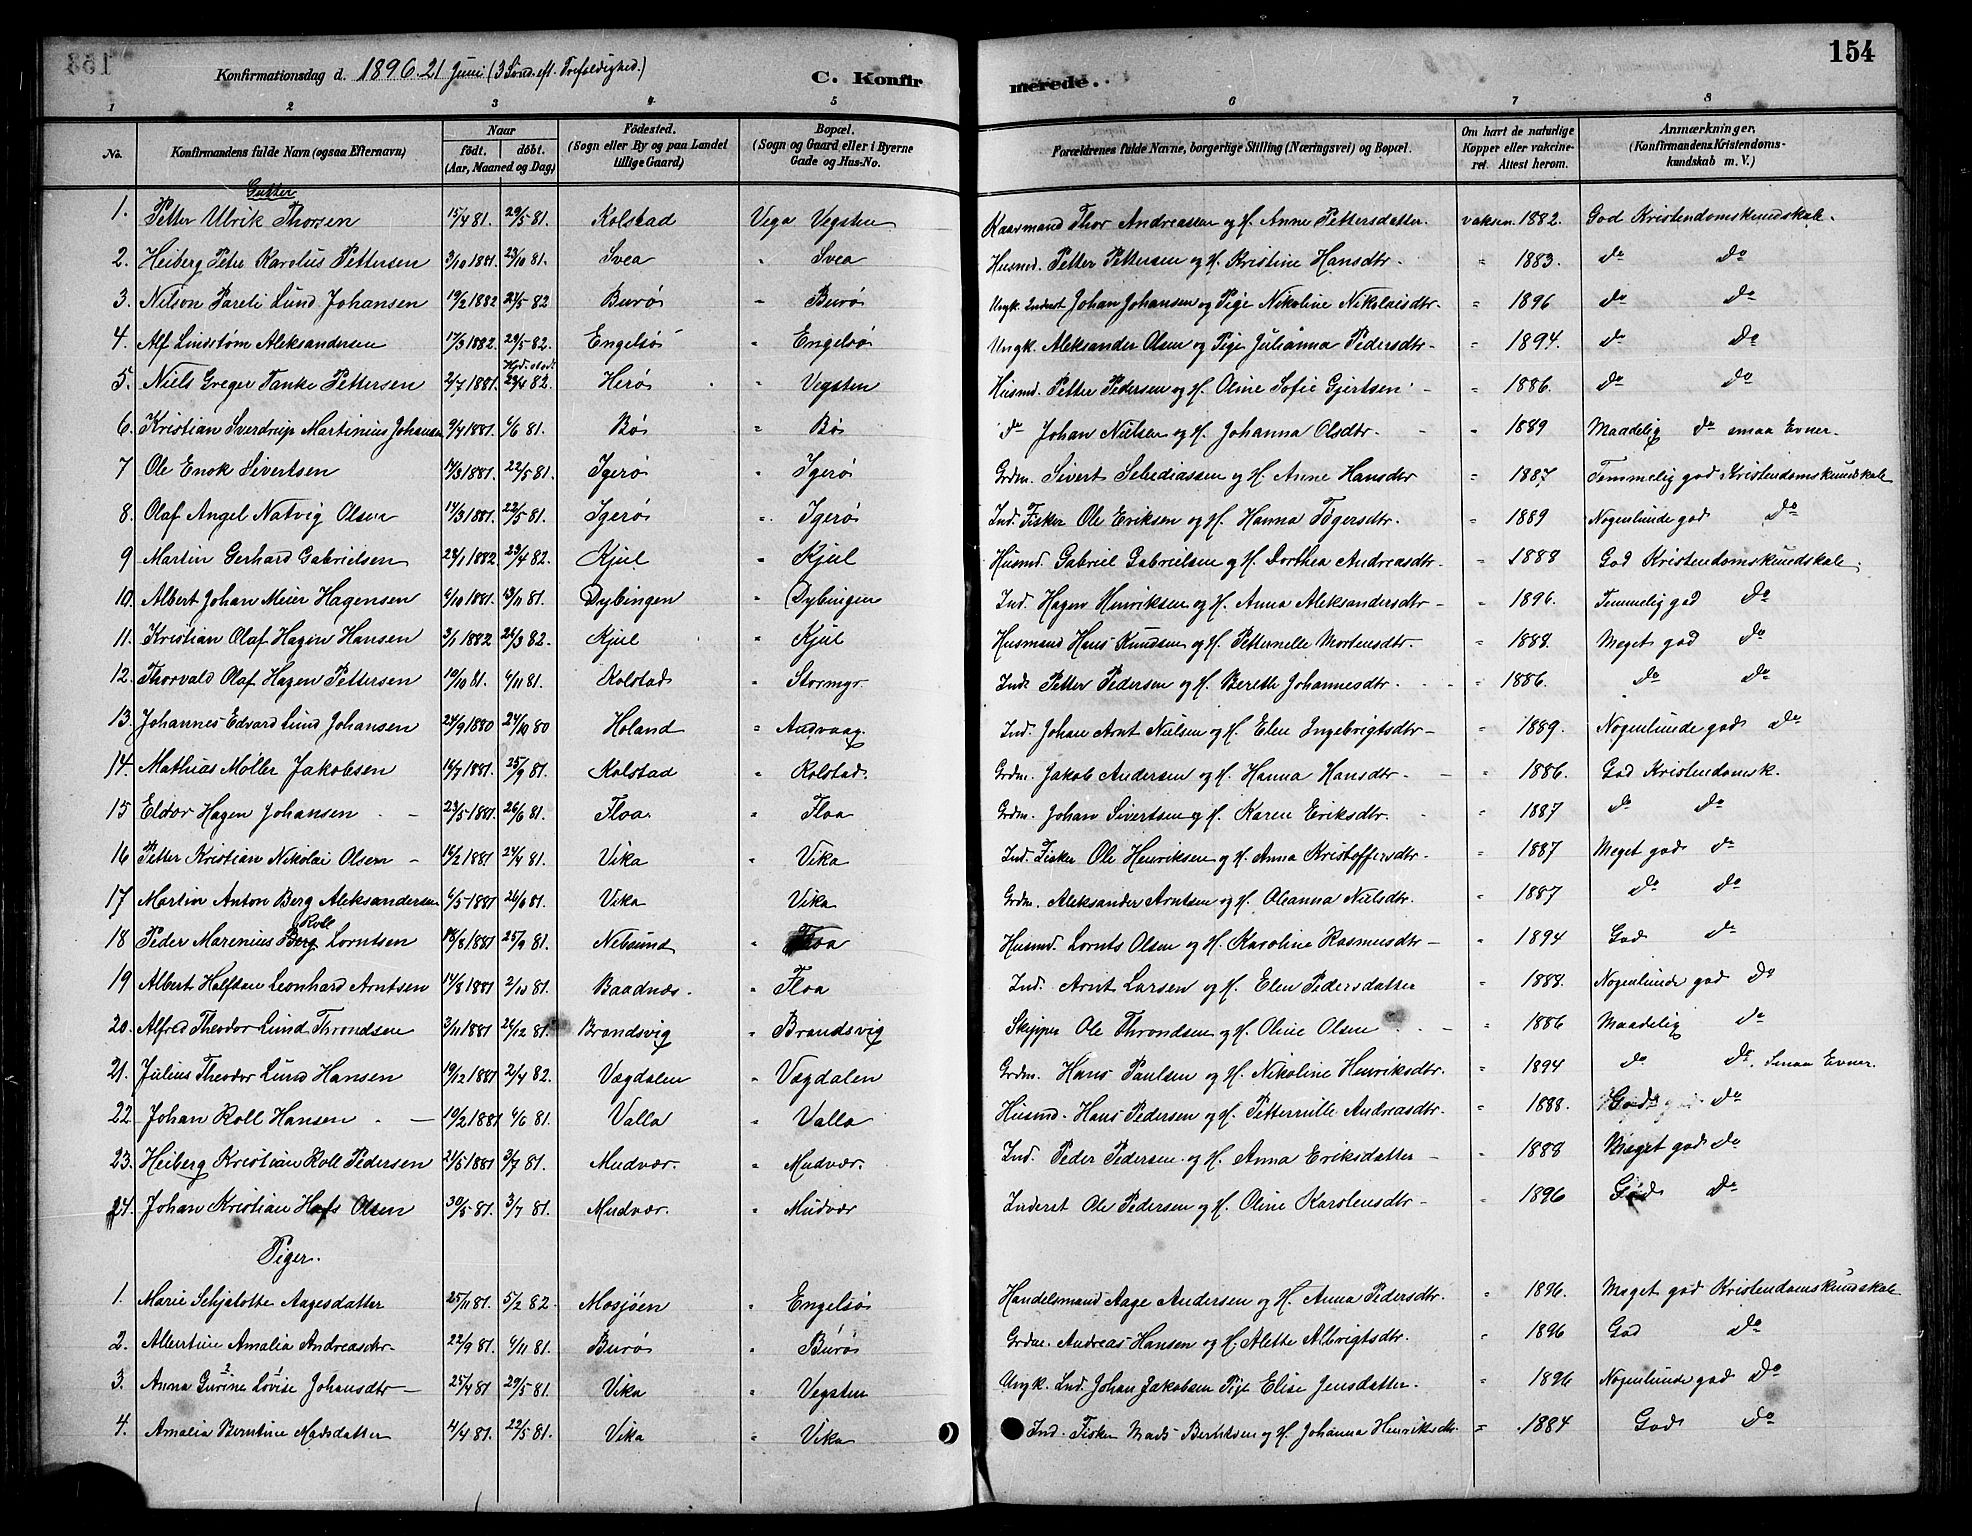 154
Konfirmationsdag d. 1896. 21 Juni (3 Sönd. eft. Trefoldighed.) C. Konfir merede.
1 2 3 4 5 6 7 8
No. Konfirmandens fulde Navn (ogsaa Efternavn) Naar födt. döbt. (Aar, Maaned og Dag) Födested. (Sogn eller By og paa Landet tillige Gaard) Bopæl. (Sogn og Gaard eller i Byerne Gade og Hus-No. Forældrenes fulde Navne, borgerlige Stilling (Næringsvei) og Bopæl. Om havt de naturlige Kopper eller vakcineret. Attest herom. Anmærkninger. (Konfirmandens Kristendomskundskab m. V.)
Gutter
1. Petter Ulrik Thorsen 15/4 81. 29/5 81. Kolstad Vega Vegsten Kaarmand Thor Andreassen og H. Anne Pettersdatter. vaksin. 1882. God Kristendomskundskab.
2. Heiberg Peter Karolius Pettersen 3/10 1881. 23/10 81. Svea " Svea Husmd. Petter Pettersen og H. Kristine Hansdtr. " 1883. do do
3. Nilson Pareli Lund Johansen 19/2 1882 29/5 82. Burø " Burø Ungk. Inderst Johan Johansen og Pige Nikoline Nikolaisdtr. " 1896 do do
4. Alf Lindstøm Aleksandersen 17/3 1882. 29/5 82. Engelsø " Engelsø Ungk. Aleksander Olsen og Pige Julianna Pedersdtr - " 1894. do do
5. Niels Greger Tanke Pettersen 2/7 1881. Hjd. stad. 23/4 82. Herø " Vegsten Husmd. Petter Pedersen og H. Oline Sofie Gjertsen - " 1886. do do
6. Kristian Sverdrup Martinius Johansen 9/4 1881. 6/6 81. Bø " Bø do Johan Nielsen og H. Johanna Olsdtr. - " 1889 Maadelig do smaa Evner.
7 Ole Enok Sivertsen 17/3 1881. 22/5 81. Igerø " Igerø Grdm. Sivert Sebediassen og H. Anne Hansdtr " 1887 Temmelig god Kristendomskundskab
8. Olaf Angel Natvig Olsen 14/3 1881. 22/5 81. Igerø " Igerø Ind. Fisker Ole Eriksen og H. Hanna Tøgersdtr. " 1889 Nogenlunde god do
9 Martin Gerhard Gabrielsen 28/1 1882 23/4 82. Kjul " Kjul Husmd. Gabriel Gabrielsen og H. Dorthea Andreasdtr. " 1888 God Kristendomskundskab.
10. Albert Johan Meier Hagensen 9/10 1881. 13/11 81. Dybingen " Dybingen Ind. Hagen Henriksen og H. Anna Aleksandersdtr - " 1896. Temmelig god do
11. Kristian Olaf Hagen Hansen 3/1 1882 26/3 82. Kjul " Kjul Husmand Hans Knudsen og H. Petternelle Mortensdtr. " 1888. Meget god do
12. Thorvald Olaf Hagen Pettersen 19/10 81. 6/11 81. Kolstad " Stormyr Ind. Petter Pedersen og H. Berethe Johannesdtr. - " 1886. do do
13. Johannes Edvard Lund Johansen 24/9 1880 24/10 80 Holand " Andvaag. Ind. Johan Arnt Nielsen og H. Elen Ingebrigtsdtr - " 1889. Nogenlunde god do
14. Mathias Møller Jakobsen 16/7 1881. 25/9 81. Kolstad " Kolstad. Grdm. Jakob Andersen og H. Hanna Hansdtr. - " 1886. God Kristendomsk.
15 Eldor Hagen Johansen - 23/5 1881. 26/6 81. Floa. " Floa Grdm. Johan Sivertsen og H. Karen Eriksdtr. " 1887 do do
16 Petter Kristian Nikolai Olsen - 16/2 1881 24/4 81. Vika " Vika Ind. Fisker Ole Henriksen og H. Anna Kristoffersdtr. " 1887 Meget god do
17 Martin Anton Berg Aleksandersen 6/5 1881 26/6 81. Vika " Vika Grdm. Aleksander Arntsen og H. Oleanna Nielsdtr. " 1887 do do
18 Peder Marenius Berg Roll Lorntsen 18/8 1881 25/9 81. Nebsund " Floa Husmd. Lornts Olsen og H. Karoline Rasmusdtr - " 1894 God do
19 Albert Halfdan Leonhard Arntsen 14/8 1881 2/10 81. Baadnes. " Floa Ind. Arnt Larsen og H. Elen Pedersdatter " 1888. Nogenlunde god do
20. Alfred Theodor Lund Throndsen 2/11 1881 26/12 81. Brandsvig " Brandsvig Skipper Ole Throndsen og H. Oline Olsen - " 1886 Maadelig do
21. Julius Theodor Lund Hansen 19/12 1881 2/4 82. Vægdalen " Vægdalen Grdm. Hans Paulsen og H. Nikoline Henriksdtr. " 1894 do do. Smaa Evner.
22 Johan Roll Hansen - 19/2 1881 6/6 81. Valla " Valla Husmd. Hans Pedersen og H. Petternille Andreasdtr. " 1888. God do
23. Heiberg Kristian Roll Pedersen 24/5 1881 3/7 81. Mudvær. " Mudvær. Ind. Peder Pedersen og H. Anna Eriksdatter - " 1888 Meget god do
24. Johan Kristian Olsen 30/5 81. 3/7 81. Mudvær. " Mudvær Inderst Ole Pedersen og H. Oline Karolensdtr - " 1896 God do
Piger.
1. Marie Schjelotte Aagesdatter 25/11 81. 5/2 82. Mosjöen " Engelsø Handelsmand Aage Andersen og H. Anna Pedersdtr. " 1896. Meget god Kristendomskundskab
2. Albertine Amalia Andreasdtr - 22/9 81. 6/11 81. Burø " Burø Grdm. Andreas Hansen og H. Alette Albrigtsdtr. " 1896 God do
3. Anna Gurine Lovise Johansdtr - 25/4 81 29/5 81. Vika " Vegsten Ungk. Ind. Johan Jakobsen Pige Elise Jensdatter. " 1896 Nogenlunde god do
4. Amalia Berntine Madsdatter 4/4 81. 22/5 81. Vika " Vika Ind. Fisker Mads Berntsen og H. Johanna Henriksdtr. " 1884 God do